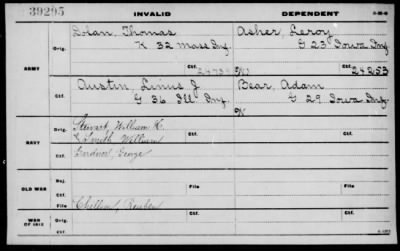 39295
INVALID
DEPENDENT
ARMY
Orig.
Dolan, Thomas
K 32 Mass Inf.
Asher, Leroy
G 23 Iowa Inf.
Ctf.
24253
Orig.
Austin, Linus J
G 36 Ill Inf.
Bear, Adam
G 29 Iowa Inf.
Ctf.
W
NAVY
Orig.
Stewart William H.
Smith William
Gardner, George
Ctf.
Orig.
Ctf.
OLD WAR
File
File
WAR OF 1812
Orig.
Chillson, Reuben
Ctf.
Orig.
Ctf.